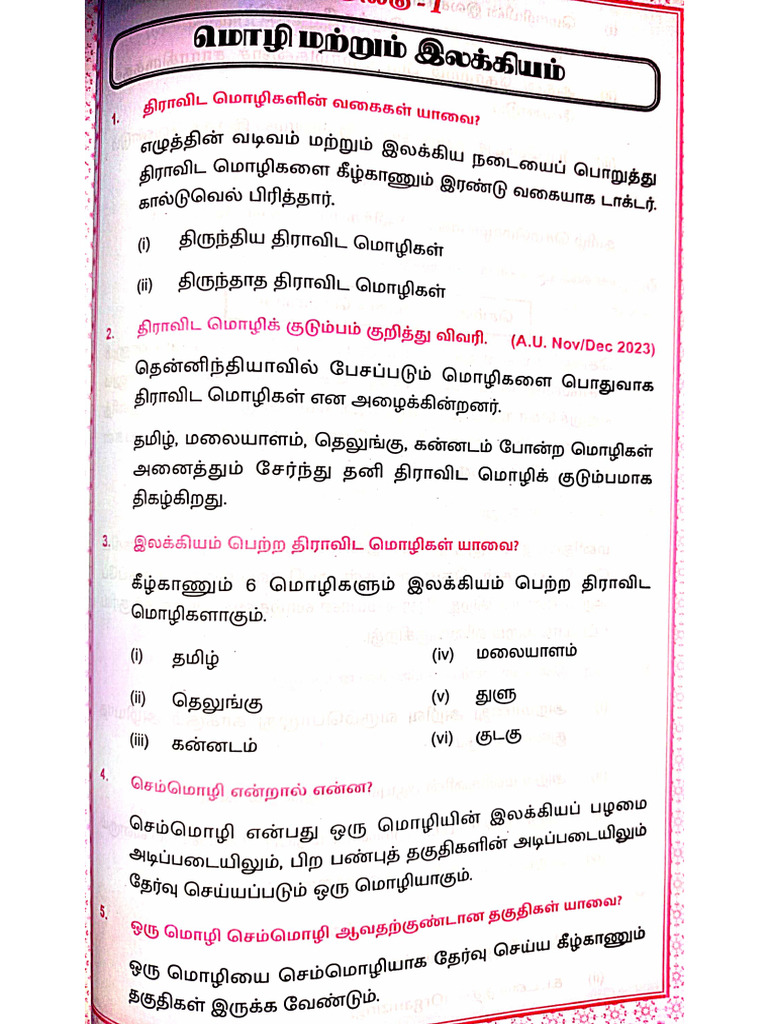 மொழி மற்றும் இலக்கியம்
1. திராவிட மொழிகளின் வகைகள் யாவை?
எழுத்தின் வடிவம் மற்றும் இலக்கிய நடையைப் பொறுத்து
திராவிட மொழிகளை கீழ்காணும் இரண்டு வகையாக டாக்டர்.
கால்டுவெல் பிரித்தார்.
(i) திருந்திய திராவிட மொழிகள்
(ii) திருந்தாத திராவிட மொழிகள்
2. திராவிட மொழிக் குடும்பம் குறித்து விவரி. (A.U. Nov/Dec 2023)
தென்னிந்தியாவில் பேசப்படும் மொழிகளை பொதுவாக
திராவிட மொழிகள் என அழைக்கின்றனர்.
தமிழ், மலையாளம், தெலுங்கு, கன்னடம் போன்ற மொழிகள்
அனைத்தும் சேர்ந்து தனி திராவிட மொழிக் குடும்பமாக
திகழ்கிறது.
3. இலக்கியம் பெற்ற திராவிட மொழிகள் யாவை?
கீழ்காணும் 6 மொழிகளும் இலக்கியம் பெற்ற திராவிட
மொழிகளாகும்.
(i) தமிழ் (iv) மலையாளம்
(ii) தெலுங்கு (v) துளு
(iii) கன்னடம் (vi) குடகு
4. செம்மொழி என்றால் என்ன?
செம்மொழி என்பது ஒரு மொழியின் இலக்கியப் பழமை
அடிப்படையிலும், பிற பண்புத் தகுதிகளின் அடிப்படையிலும்
தேர்வு செய்யப்படும் ஒரு மொழியாகும்.
5. ஒரு மொழி செம்மொழி ஆவதற்குண்டான தகுதிகள் யாவை?
ஒரு மொழியை செம்மொழியாக தேர்வு செய்ய கீழ்காணும்
தகுதிகள் இருக்க வேண்டும்.